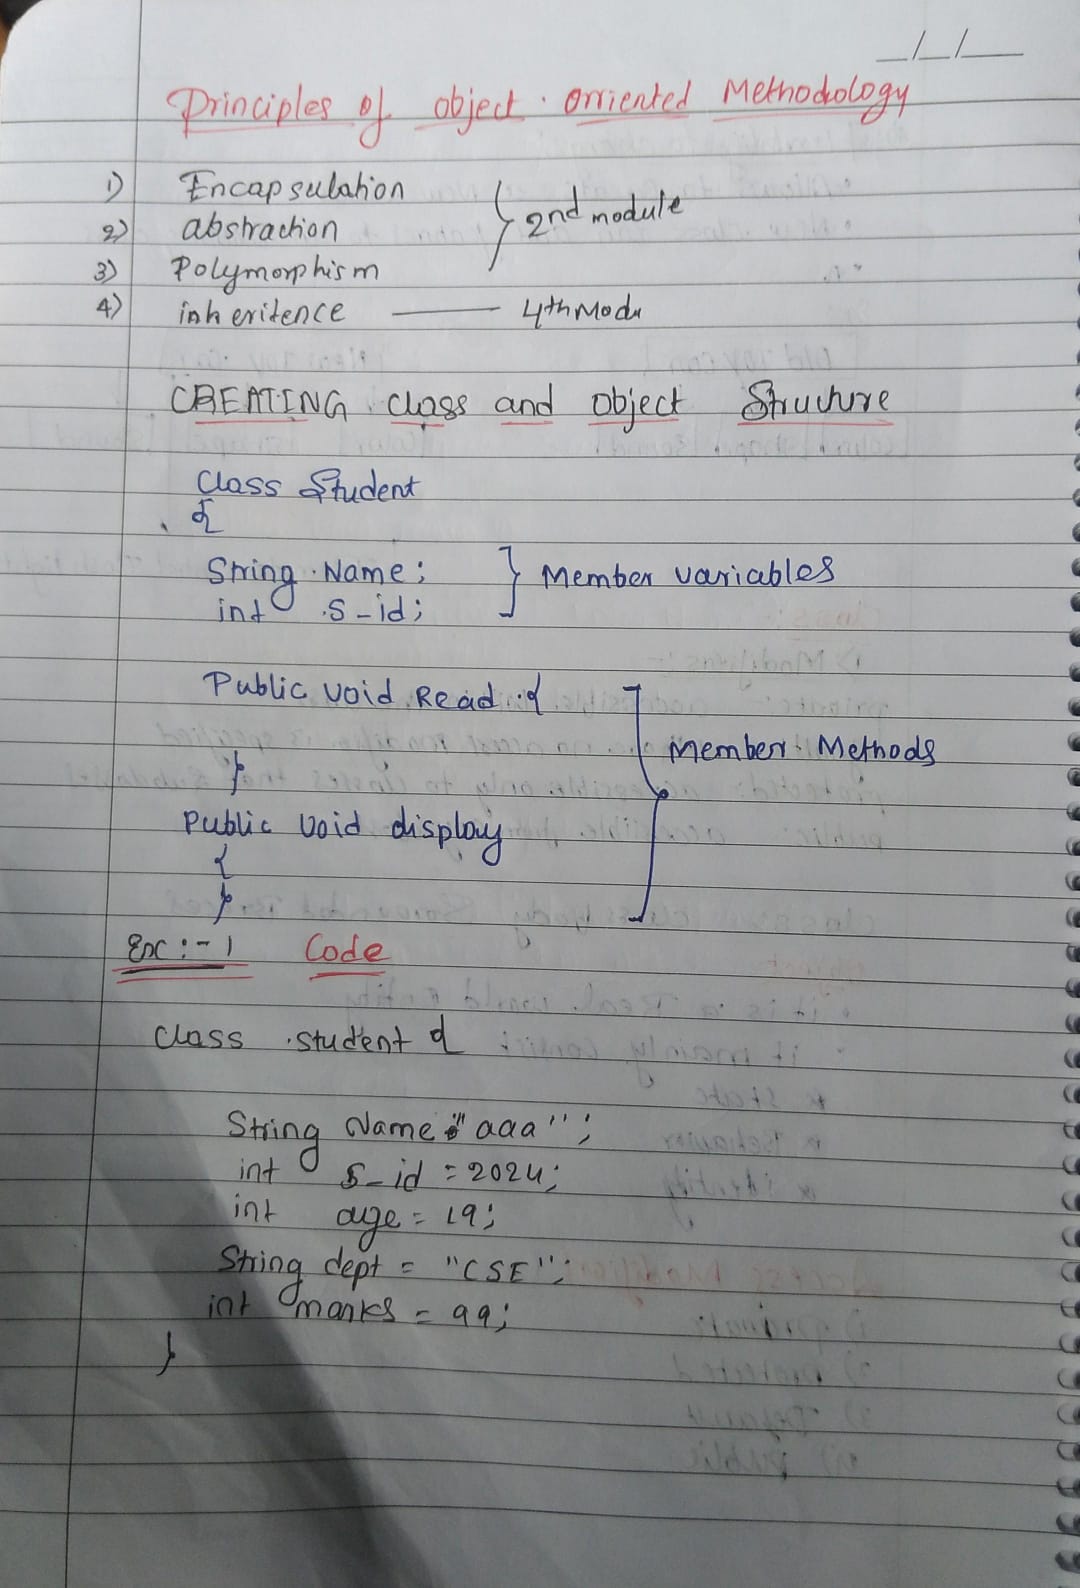 Principles of object oriented Methodology
1) Encapsulation
2) abstraction
} 2nd module
3) Polymorphism
4) inheritence —— 4th Modu
CREATING class and object Structure
Class Student
{
String Name;
int s_id;
} Member variables
Public void Read {
}
Member Methods
Public void display
{
}
Ex:-1 Code
class student {
String Name = "aaa";
int s_id = 2024;
int age = 19;
String dept = "CSE";
int marks = 99;
}